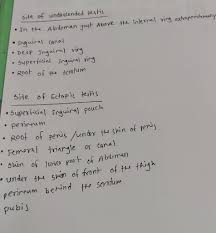 Site of undescended testis
• In the Abdomen just above the internal ring extraperitoneally
• Inguinal canal
• Deep Inguinal ring
• Superficial Inguinal ring
• Root of the scrotum
Site of Ectopic testis
• Superficial Inguinal pouch
• perineum
• Root of penis / under the skin of penis
• Femoral triangle or canal
• skin of lower part of Abdomen
• under the skin of front of the thigh
perineum behind the scrotum
pubis